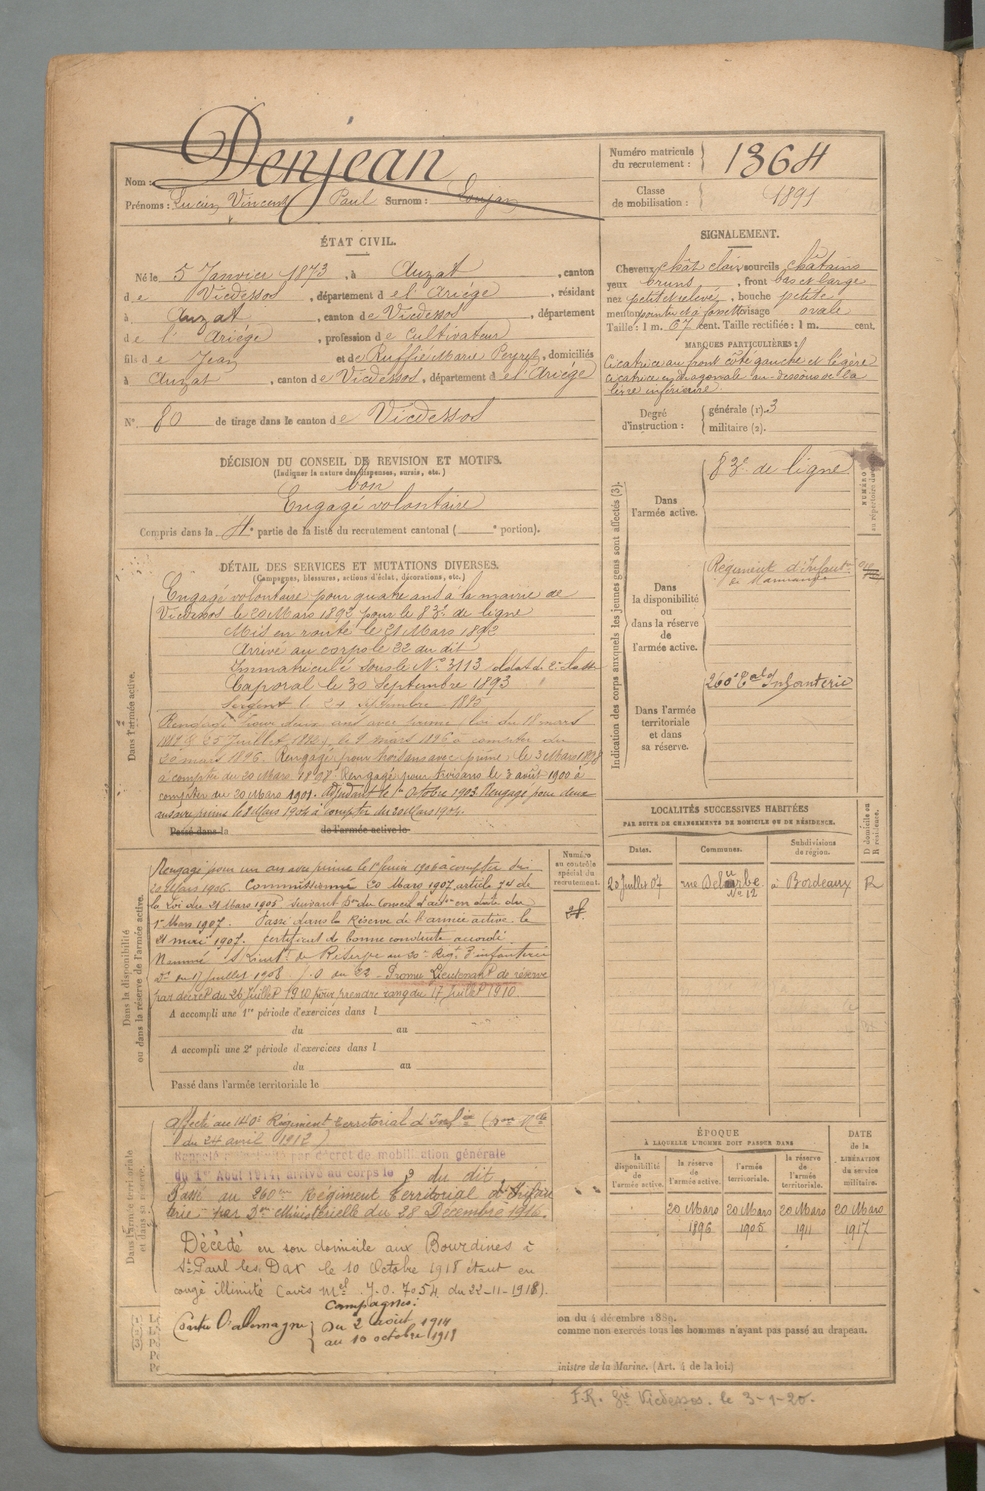 Nom : Denjean
Prénoms : Lucien Vincent Paul Surnom :
Numéro matricule du recrutement : 1364
Classe de mobilisation : 1891
ÉTAT CIVIL.
Né le 5 Janvier 1873, à Auzat, canton
de Vicdessos, département de l'Ariége, résidant
à Auzat, canton de Vicdessos, département
de l'Ariége, profession de Cultivateur
fils de Jean et de Ruffié Marie, domiciliés
à Auzat, canton de Vicdessos, département de l'Ariége
N° 80 de tirage dans le canton de Vicdessos
SIGNALEMENT.
Cheveux chât clair sourcils châtains
yeux bruns, front bas et large
nez petit et relevé, bouche petite
menton pointu et à fossette visage ovale
Taille : 1 m. 67 cent. Taille rectifiée : 1 m. cent.
MARQUES PARTICULIÈRES :
Cicatrice au front côté gauche et légère
cicatrice en diagonale au-dessous de la
lèvre inférieure.
Degré d'instruction : générale (1). 3
militaire (2).
DÉCISION DU CONSEIL DE REVISION ET MOTIFS.
(Indiquer la nature des dispenses, sursis, etc.)
bon
Engagé volontaire
Compris dans la 4e partie de la liste du recrutement cantonal ( e portion).
DÉTAIL DES SERVICES ET MUTATIONS DIVERSES.
(Campagnes, blessures, actions d'éclat, décorations, etc.)
Dans l'armée active.
Engagé volontaire pour quatre ans à la mairie de
Vicdessos le 20 Mars 1892 pour le 83e de ligne
Mis en route le 21 Mars 1892
Arrivé au corps le 22 du dit
Immatriculé sous le No 3113 soldat de 2e classe
Caporal le 30 Septembre 1893
Sergent le 24 Septembre
Rengagé pour deux ans avec prime, loi du 18 mars
1889 & 25 Juillet 1893, le 9 mars 1896 à compter du
20 mars 1896. Rengagé pour trois ans avec prime le 3 Mars 1898
à compter du 20 Mars 1898. Rengagé pour trois ans le 2 août 1900 à
compter du 20 Mars 1901. Adjudant le 1er Octobre 1903. Rengagé pour deux
ans avec prime le 2 Mars 1904 à compter du 20 Mars 1904.
Passé dans la de l'armée active le
Indication des corps auxquels les jeunes gens sont affectés (3).
Dans l'armée active. 83e de ligne
Dans la disponibilité ou dans la réserve de l'armée active. Régiment d'Infant.
de Marmande
Dans l'armée territoriale et dans sa réserve. 260e Eal d'Infanterie
Dans la disponibilité ou dans la réserve de l'armée active.
Rengagé pour un an avec prime le 1er 1906 à compter du
20 Mars 1906. Commissionné 20 Mars 1907, article 74 de
la Loi du 21 Mars 1905 suivant Don du Conseil d'adon en date du
1er Mars 1907. Passé dans la Réserve de l'armée active le
21 mai 1907. certificat de bonne conduite accordé.
Nommé S/Lieut. de Réserve au 20e Régt d'infanterie
Don du 17 Juillet 1908. J.O du 22 - Promu Lieutenant de réserve
par décret du 26 Juillet 1910 pour prendre rang du 17 juillet 1910.
A accompli une 1re période d'exercices dans l
du au
A accompli une 2e période d'exercices dans l
du au
Passé dans l'armée territoriale le
Numéro au contrôle spécial du recrutement.
LOCALITÉS SUCCESSIVES HABITÉES
PAR SUITE DE CHANGEMENTS DE DOMICILE OU DE RÉSIDENCE.
Dates. Communes. Subdivisions de région. D domicile ou R résidence.
20 Juillet 07 rue No 12 à Bordeaux R
Dans l'armée territoriale et dans sa réserve.
Affecté au 140e Régiment Territorial d'Infie
du 24 avril 1912)
Rappelé à l'activité par décret de mobilisation générale
du 1er Août 1914, arrivé au corps le 3 du dit
Passé au 260me Régiment Territorial d'Infan-
terie par Don Ministérielle du 28 Décembre 1916.
Décédé en son domicile aux Bourdines à
St Paul les Dax le 10 Octobre 1918 étant en
congé illimité (avis Mel J.O. 7054 du 22-11-1918).
Campagnes :
Contre l'allemagne du 2 août 1914
au 10 octobre 1918
ÉPOQUE
À LAQUELLE L'HOMME DOIT PASSER DANS
la disponibilité de l'armée active. la réserve de l'armée active. l'armée territoriale. la réserve de l'armée territoriale. DATE de la LIBÉRATION du service militaire.
20 Mars 1896 20 Mars 1905 20 Mars 1911 20 Mars 1917
ion du 4 décembre 1889.
comme non exercés tous les hommes n'ayant pas passé au drapeau.
inistre de la Marine. (Art. 4 de la loi.)
F.R. Vicdessos. le 3-1-20.